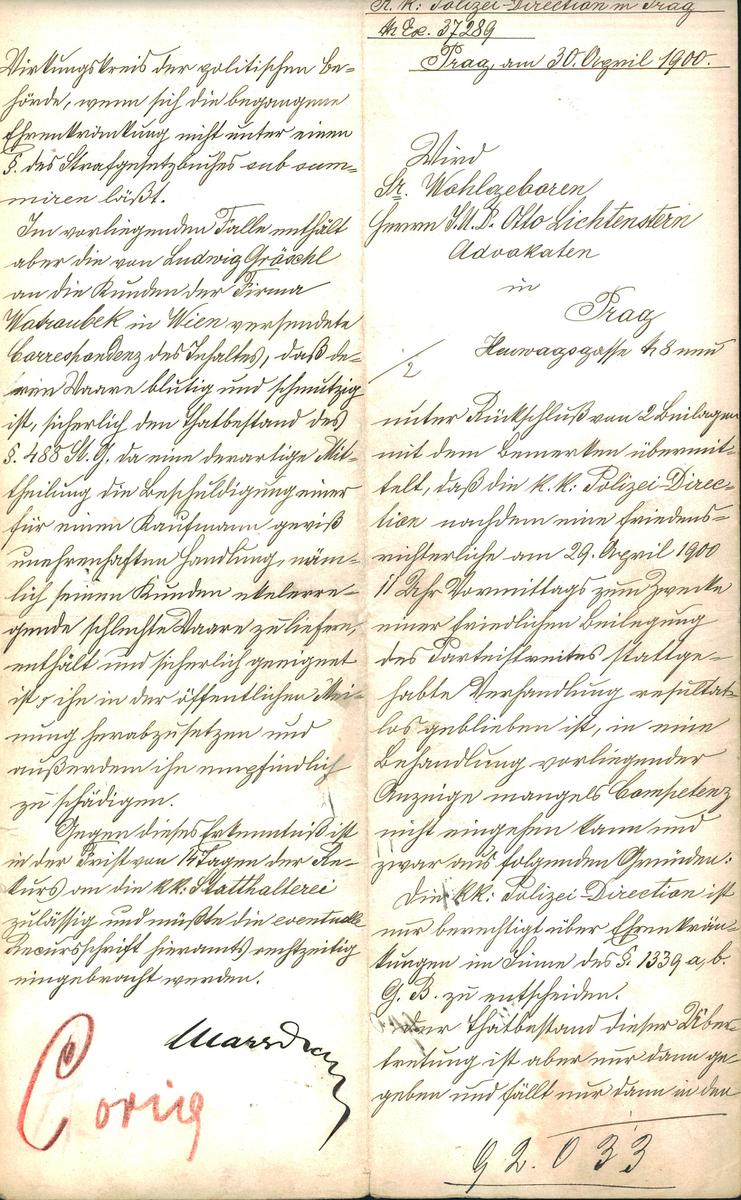 K. k: Polizei-Direction in Prag
№ Ex. 37289
Prag, am 30. April 1900.
Wird
Sr. Wohlgeboren
Herrn J.U.D. Otto Lichtenstern
Advokaten
in
Prag
Heuwagsgasse № 8 neu
·/2
unter Rückschluß von 2 Beilagen
mit dem Bemerken übermit-
telt, daß die k. k: Polizei-Direc-
tion nachdem eine friedens-
richterliche am 29. April 1900
11 Uhr Vormittags zum Zwecke
einer friedlichen Beilegung
des Parteistreites stattge-
habte Verhandlung resultat-
los geblieben ist, in eine
Behandlung vorliegender
Anzeige mangels Competenz
nicht eingehen kann und
zwar aus folgenden Gründen:
Die kk: Polizei-Direction ist
nur berechtigt über Ehrenkrän-
kungen im Sinne des §. 1339 a. b.
G. B. zu entscheiden.
Der Thatbestand dieser Über-
tretung ist aber nur dann ge-
geben und fällt nur dann in den
92.033
Wirkungskreis der politischen Be-
hörde, wenn sich die begangene
Ehrenkränkung nicht unter einen
§. des Strafgesetzbuches subsum-
miren läßt.
Im vorliegenden Falle enthält
aber die von Ludwig Gröschl
an die Kunden der Firma
Watraubek in Wien versendete
Correspondenz des Inhaltes, daß de-
ren Waare blutig und schmutzig
ist, sicherlich den Thatbestand des
§. 488 St. G. da eine derartige Mit-
theilung die Beschuldigung einer
für einen Kaufmann gewiß
unehrenhaften Handlung, näm-
lich seinen Kunden ekelerre-
gende schlechte Waare zu liefern,
enthält und sicherlich geeignet
ist, ihn in der öffentlichen Mei-
nung herabzusetzen und
außerdem ihn empfindlich
zu schädigen.
Gegen dieses Erkenntniß ist
in der Frist von 14 Tagen der Re-
kurs an die kk: Statthalterei
zulässig und müßte die eventuelle
Recursschrift hieramts rechtzeitig
eingebracht werden.